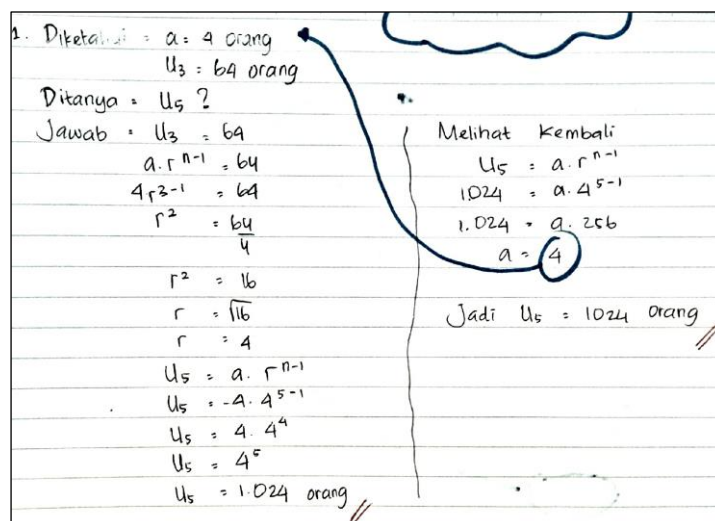 1. Diketahui = a = 4 orang
U₃ = 64 orang
Ditanya = U₅ ?
Jawab = U₃ = 64
a.rⁿ⁻¹ = 64
4r³⁻¹ = 64
r² = 64/4
r² = 16
r = √16
r = 4
U₅ = a. rⁿ⁻¹
U₅ = -4. 4⁵⁻¹
U₅ = 4. 4⁴
U₅ = 4⁵
U₅ = 1.024 orang //
Melihat Kembali
U₅ = a.rⁿ⁻¹
1.024 = a.4⁵⁻¹
1.024 = a.256
a = 4
Jadi U₅ = 1024 orang //